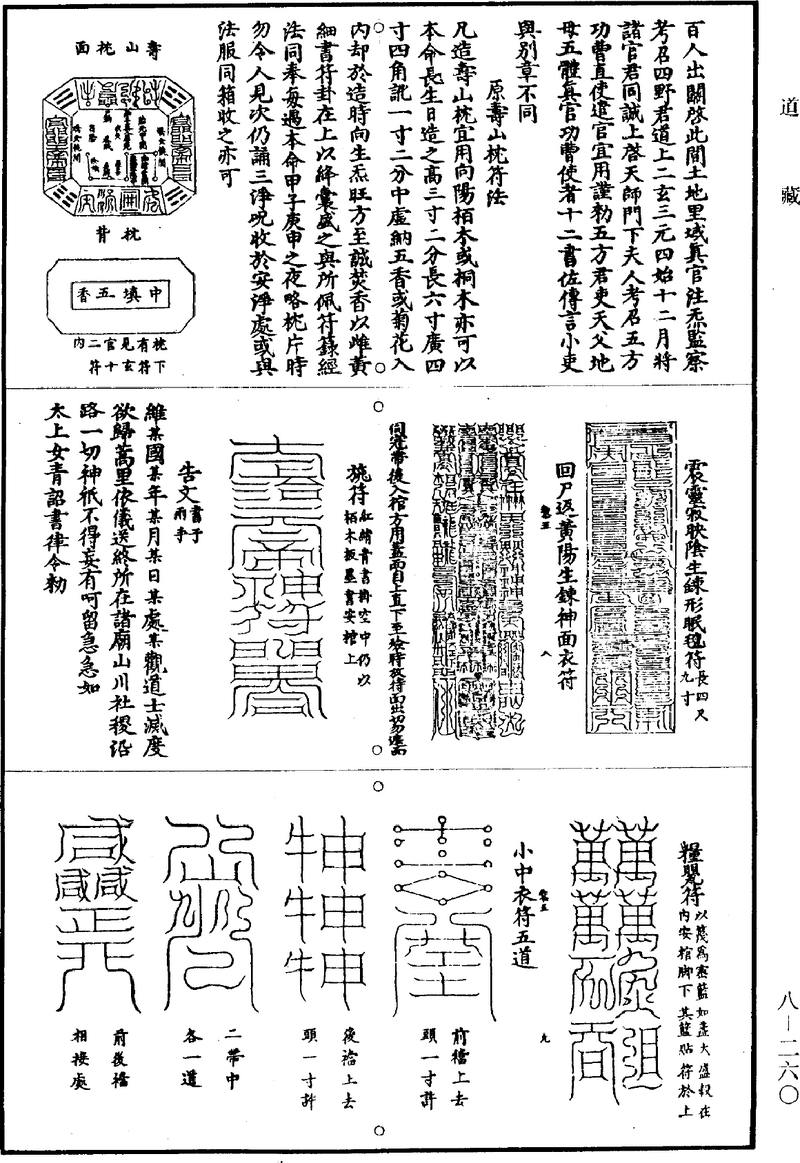 道藏
百人出關啓此間土地里域真官注炁監察
考召四野君道上二玄三元四始十二月將
諸官君同誠上啓天師門下夫人考召五方
功曹直使違官宜用謹勑五方君吏天父地
母五體真官功曹使者十二書佐傳言小吏
與别章不同
原壽山枕符法
凡造壽山枕宜用向陽栢木或桐木亦可以
本命長生日造之高三寸二分長六寸廣四
寸四角訛一寸二分中虛納五香或菊花入
内却於造時向生炁旺方至誠焚香以雌黄
細書符卦在上以絳囊盛之與所佩符籙經
法同奉每遇本命甲子庚申之夜略枕片時
勿令人見次仍誦三淨呪收於安淨處或與
法服同箱收之亦可
壽山枕面
枕背
中填五香
枕有見官二内
下符玄十符
震靈寂映陰生鍊形眠氊符長四尺九寸
回尸返黄陽生鍊神面衣符
八
施符紅繒青書掛空中仍以栢木板墨書安棺上
告文書于兩旁
維某國某年某月某日某處某觀道士滅度
欲歸蒿里依儀送終所在諸廟山川社稷沿
路一切神祇不得妄有呵留急急如
太上女青詔書律令勑
糧甖符
小中衣符五道
九
前襠上去頭一寸許
後襠上去頭一寸許
二帶中各一道
前後襠相接處
八—二六〇